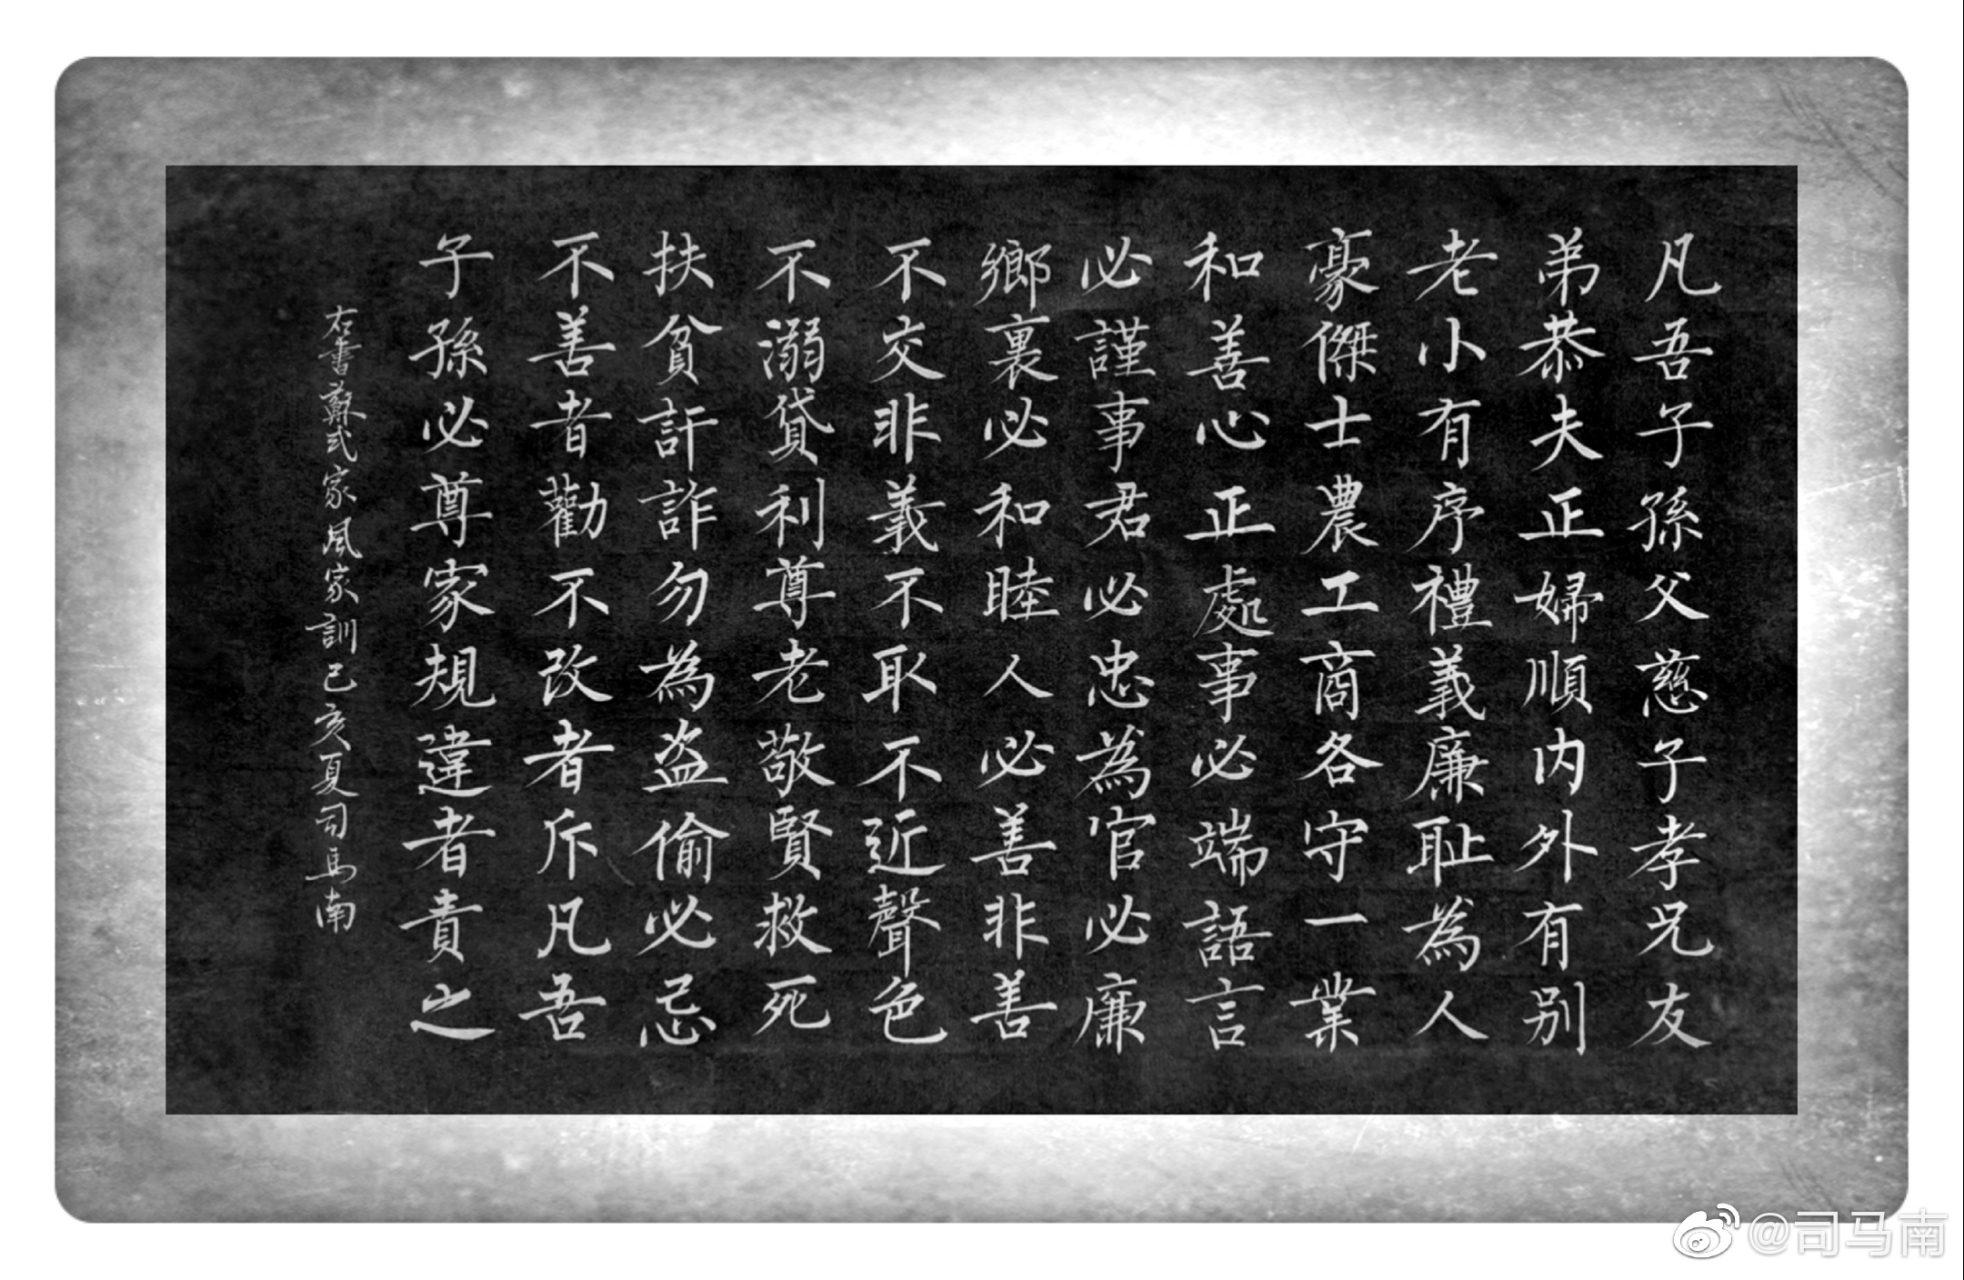 凡吾子孫父慈子孝兄友
弟恭夫正婦順内外有别
老小有序禮義廉耻為人
豪傑士農工商各守一業
和善心正處事必端語言
必謹事君必忠為官必廉
鄉裏必和睦人必善非善
不交非義不取不近聲色
不溺貸利尊老敬賢救死
扶貧訐詐勿為盗偷必忌
不善者勸不改者斥凡吾
子孫必尊家規違者責之
右書蘇武家風家訓己亥夏司馬南
@司马南